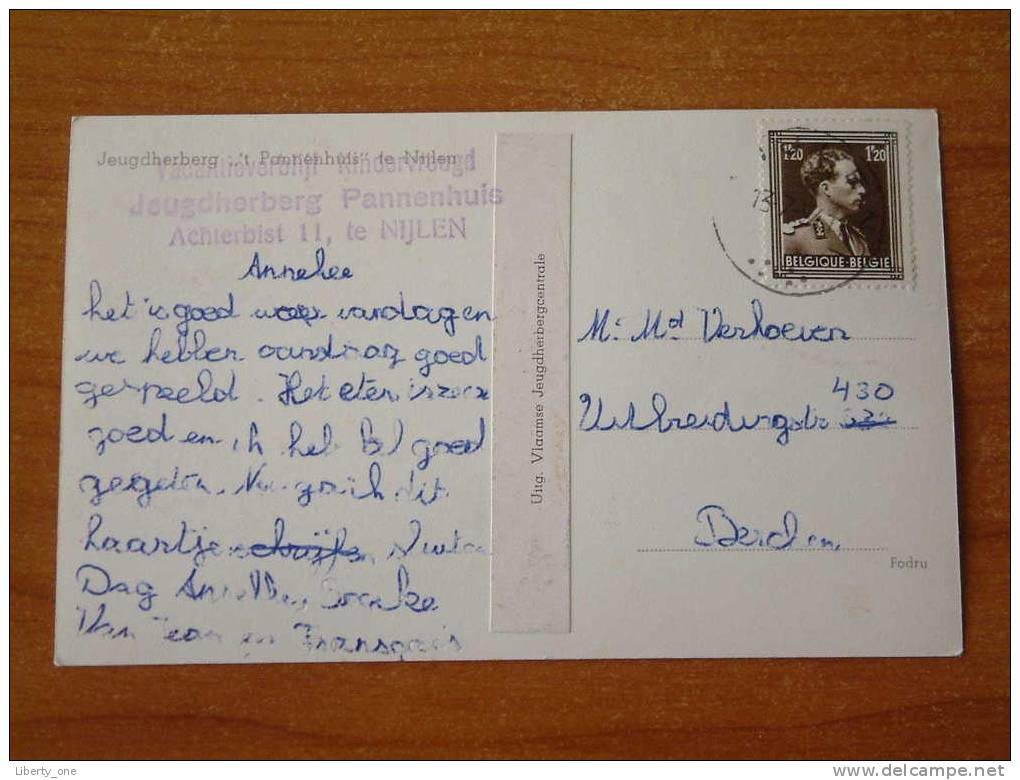 Jeugdherberg „'t Pannenhuis" te Nijlen
Vacantieverblijf Kindervreugd
Jeugdherberg Pannenhuis
Achterbist 11, te NIJLEN
Annelee
het is goed weer vandaag en
we hebben vandaag goed
gespeeld. Het eten is zeer
goed en ik heb goed
gegeten. Nu ga ik dit
kaartje schrijfen
Dag
Jean en François
Uitg. Vlaamse Jeugdherbergcentrale
1F20 1F20
BELGIQUE-BELGIE
13
M. Md Verhoeven
430
Uitbreidingstr
Berchem
Fodru
Liberty_one
www.delcampe.net